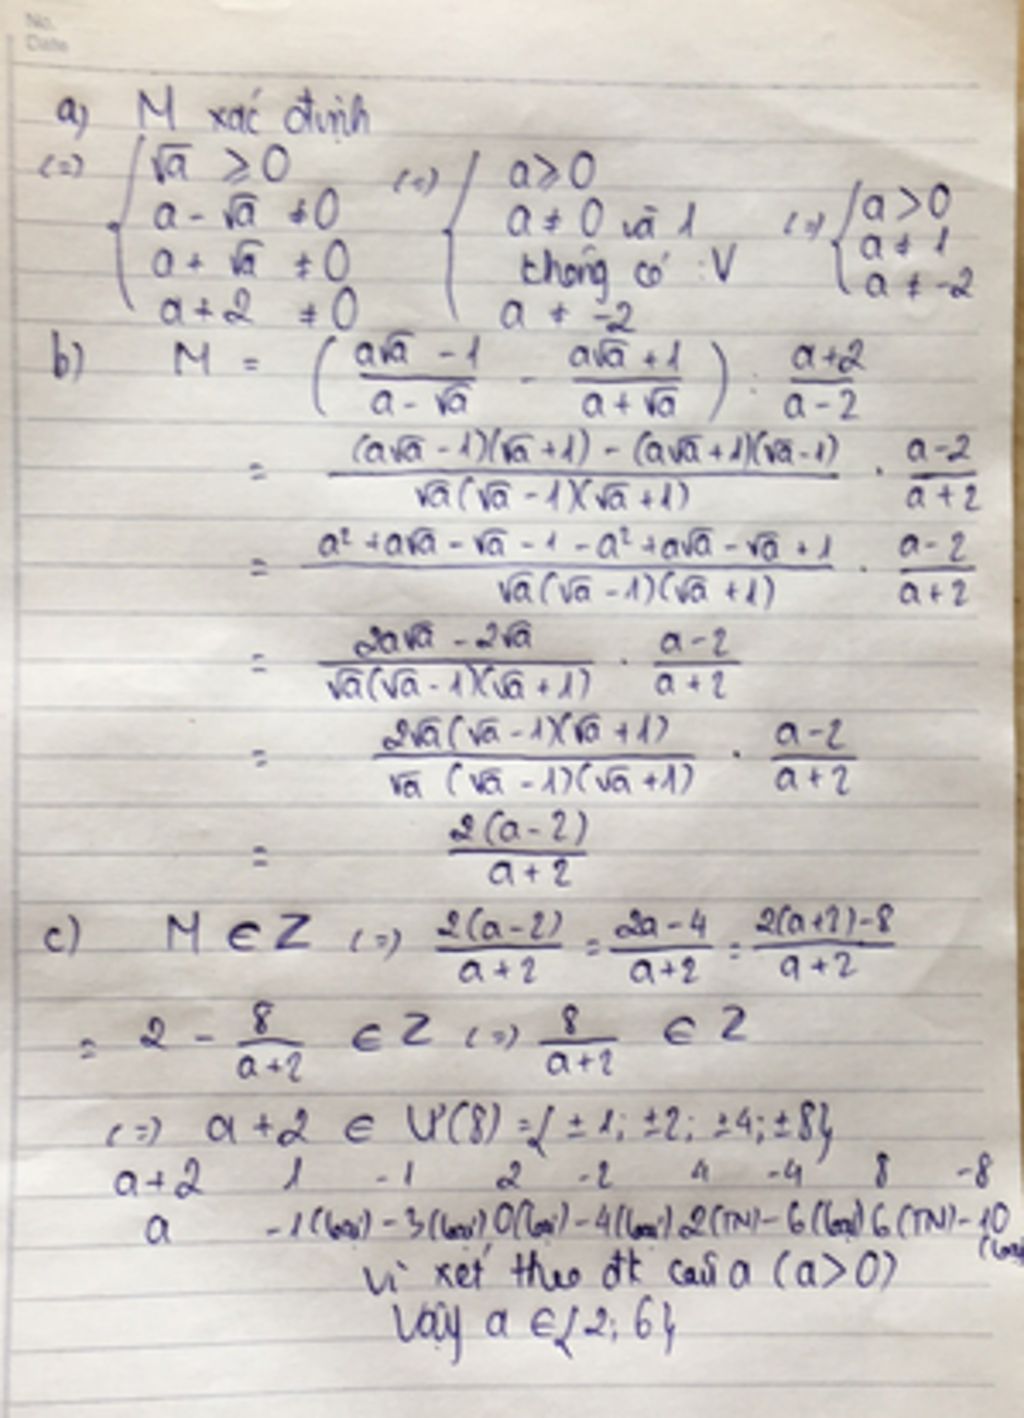 No.
Date
a) M xác định
(=) { √a ≥ 0 (=) { a ≥ 0
a - √a ≠ 0 a ≠ 0 và 1 (=) { a > 0
a + √a ≠ 0 không có :V a ≠ 1
a + 2 ≠ 0 a ≠ -2 a ≠ -2
b) M = ( (a√a - 1)/(a - √a) - (a√a + 1)/(a + √a) ) : (a+2)/(a-2)
= ((a√a - 1)(√a + 1) - (a√a + 1)(√a - 1))/(√a(√a - 1)(√a + 1)) . (a-2)/(a+2)
= (a² + a√a - √a - 1 - a² + a√a - √a + 1)/(√a(√a - 1)(√a + 1)) . (a-2)/(a+2)
= (2a√a - 2√a)/(√a(√a - 1)(√a + 1)) . (a-2)/(a+2)
= (2√a(√a - 1)(√a + 1))/(√a(√a - 1)(√a + 1)) . (a-2)/(a+2)
= (2(a-2))/(a+2)
c) M ∈ Z (=) (2(a-2))/(a+2) = (2a-4)/(a+2) = (2(a+2)-8)/(a+2)
= 2 - 8/(a+2) ∈ Z (=) 8/(a+2) ∈ Z
(=) a+2 ∈ Ư(8) = { ±1; ±2; ±4; ±8}
a+2 1 -1 2 -2 4 -4 8 -8
a -1 (loại) -3 (loại) 0 (loại) -4 (loại) 2 (TN) -6 (loại) 6 (TN) -10 (loại)
Vì xét theo đk câu a (a>0)
Vậy a ∈ {2; 6}